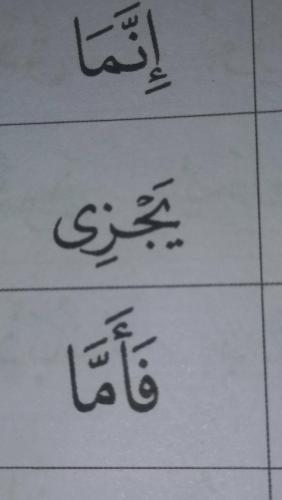 إِنَّمَا
يَجْزِى
فَأَمَّا